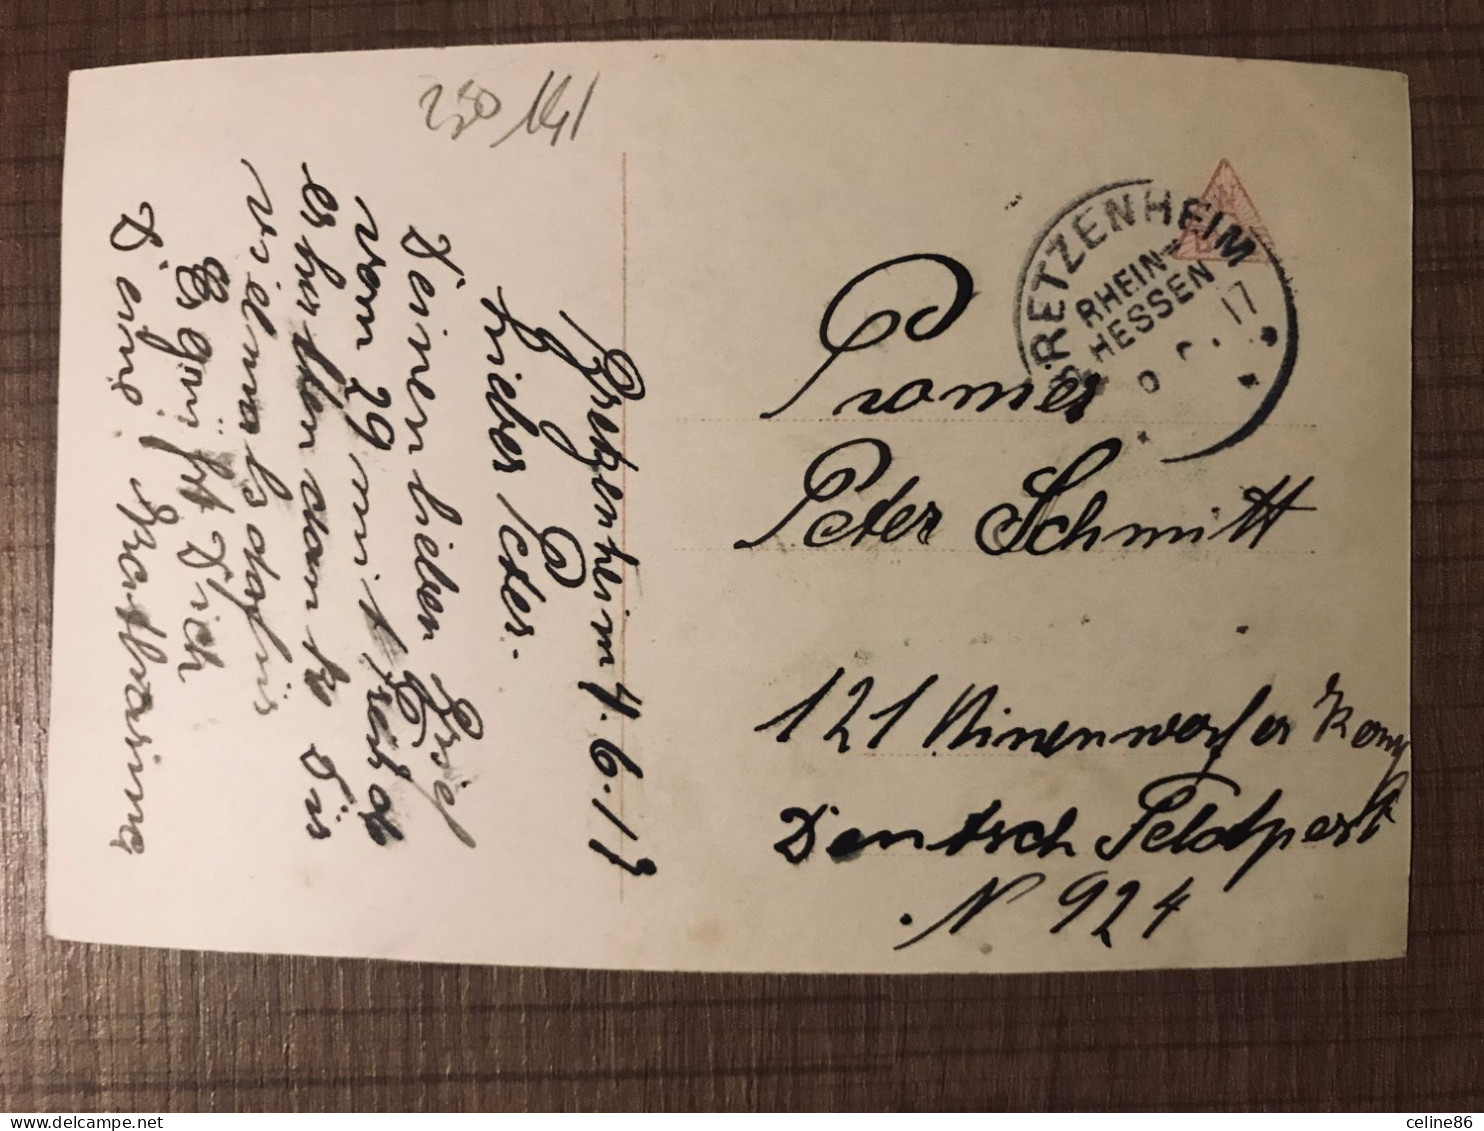 250 141
Bretzenheim 4.6.17
Lieber Peter.
Deinen lieben Brief
vom 29 mit
erhalten danke Dir
vielmals dafür
Es grüßt Dich
Deine Kathrina
BRETZENHEIM
RHEIN-
HESSEN
17
Pionier
Peter Schmitt
121 Minenwerfer Komp
Deutsch Feldpost
N 924
delcampe.net
celine86